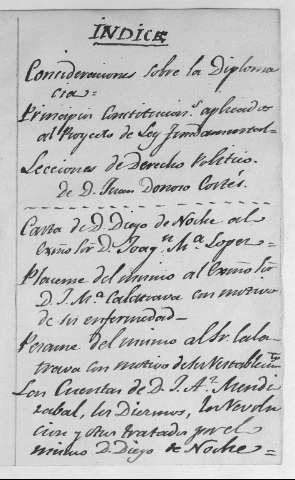 INDICE
Consideraciones sobre la Diploma
cia=
Principios Constitucion.s aplicados
al Proyecto de Ley Fundamental=
Lecciones de Derecho Politico.
de D. Juan Donoso Cortés.
Carta de D. Diego de Noche al
Exmo Sor D. Joaq.n M.a Lopez=
Placeme del mismo al Exmo Sor
D. J. M.a Calatrava con motivo
de su enfermedad=
Pesame del mismo al Sr. Cala
trava con motivo de su Restablecim.to
Las Cuentas de D. J. A.z Mendi
zabal, los Diezmos, la Revolu
cion y otros tratados por el
mismo D. Diego de Noche=